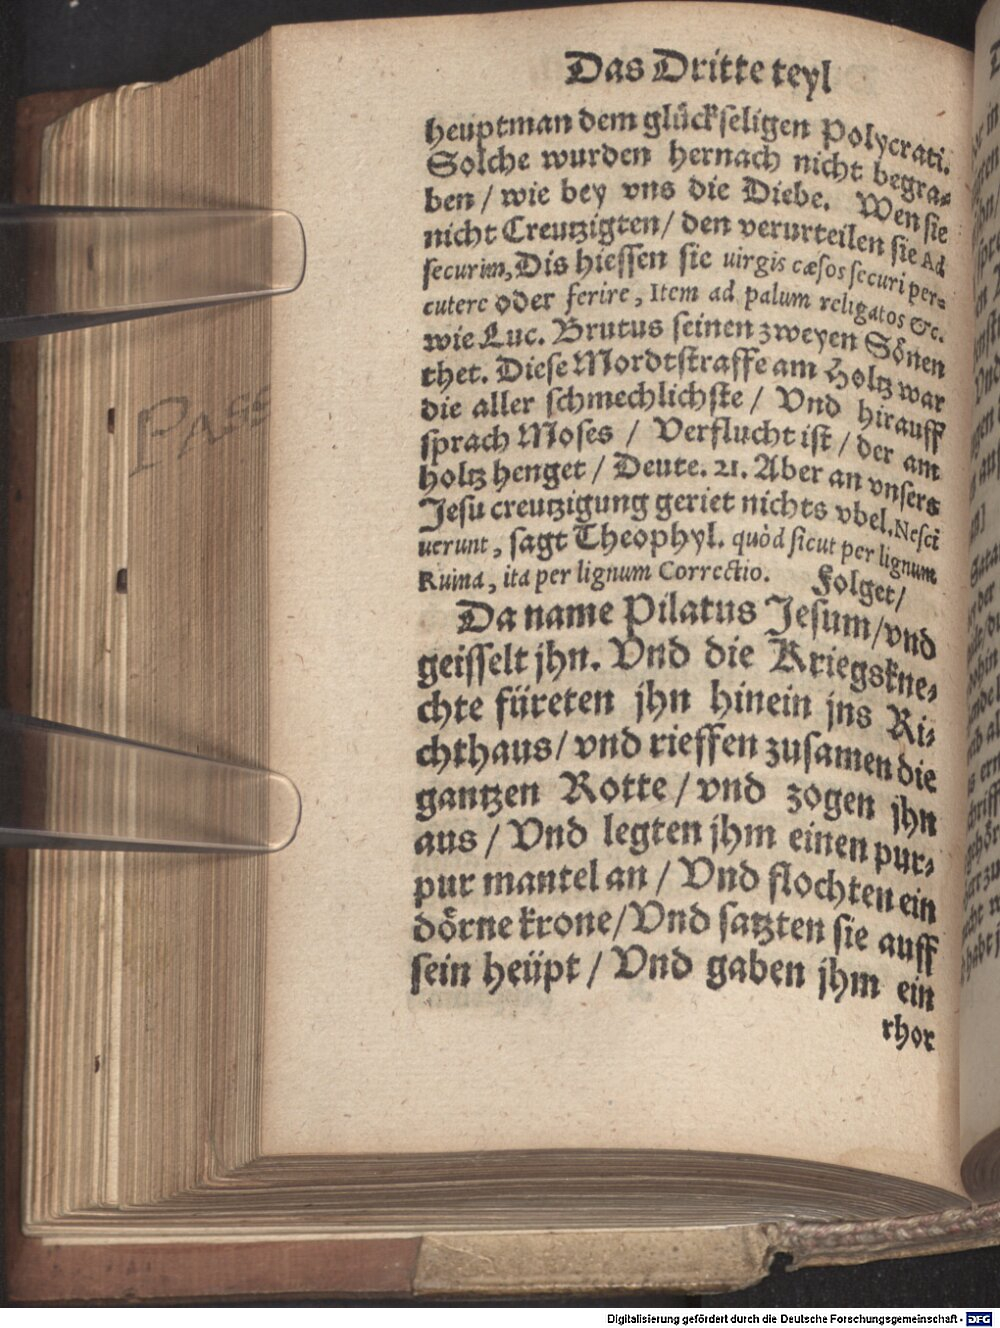 Das Dritte teyl
heuptman dem glückseligen Polycrati.
Solche wurden hernach nicht begra⸗
ben / wie bey vns die Diebe. Wen sie
nicht Creutzigten / den verurteilen sie Ad
securim, Dis hiessen sie uirgis cæsos securi per⸗
cutere oder ferire, Item ad palum religatos &c.
wie Luc. Brutus seinen zweyen Sönen
thet. Diese Mordtstraffe am Holtz war
die aller schmechlichste / Vnd hirauff
sprach Moses / Verflucht ist / der am
holtz henget / Deute. 21. Aber an vnsers
Jesu creutzigung geriet nichts vbel. Nesci
uerunt, sagt Theophyl. quòd sicut per lignum
Ruina, ita per lignum Correctio. Folget /
Da name Pilatus Jesum / vnd
geisselt jhn. Vnd die Kriegskne⸗
chte füreten jhn hinein jns Ri⸗
chthaus / vnd rieffen zusamen die
gantzen Rotte / vnd zogen jhn
aus / Vnd legten jhm einen pur⸗
pur mantel an / Vnd flochten ein
dörne krone / Vnd satzten sie auff
sein heüpt / Vnd gaben jhm ein
rhor
PASS
Digitalisierung gefördert durch die Deutsche Forschungsgemeinschaft - DFG